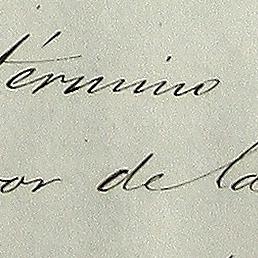 término
or de la